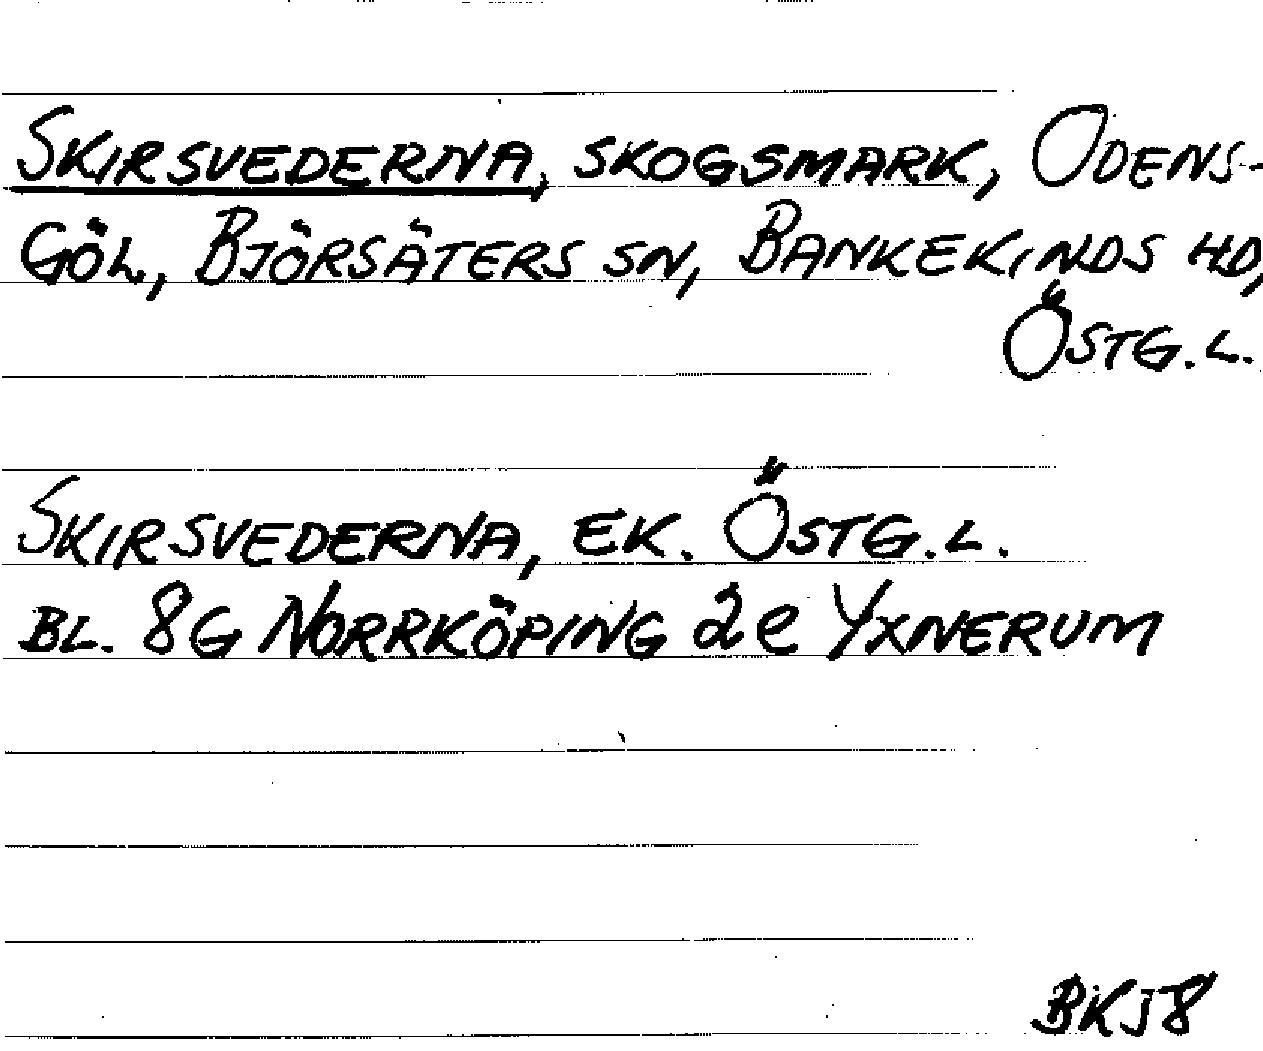 SKIRSVEDERNA, SKOGSMARK, ODENS-
GÖL, BJÖRSÄTERS SN, BANKEKINDS HD,
ÖSTG.L.
SKIRSVEDERNA, EK. ÖSTG.L.
BL. 8G NORRKÖPING 2e YXNERUM
BKJ8